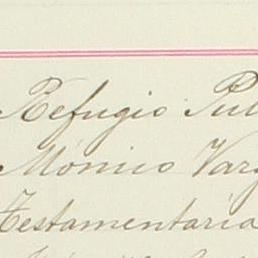 Refugio Pul
Mónico Varg
Testamentaria